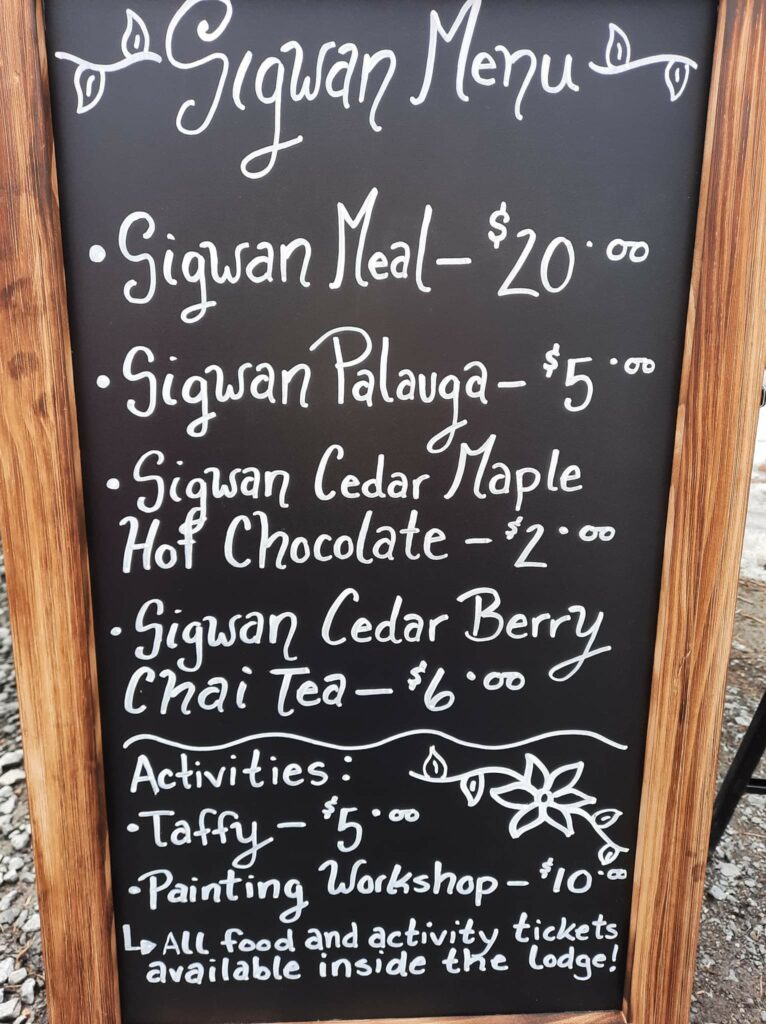 Sigwan Menu
• Sigwan Meal – $20.00
• Sigwan Palauga – $5.00
• Sigwan Cedar Maple
Hot Chocolate – $2.00
• Sigwan Cedar Berry
Chai Tea – $6.00
Activities:
• Taffy – $5.00
• Painting Workshop – $10.00
↳ All food and activity tickets
available inside the lodge!